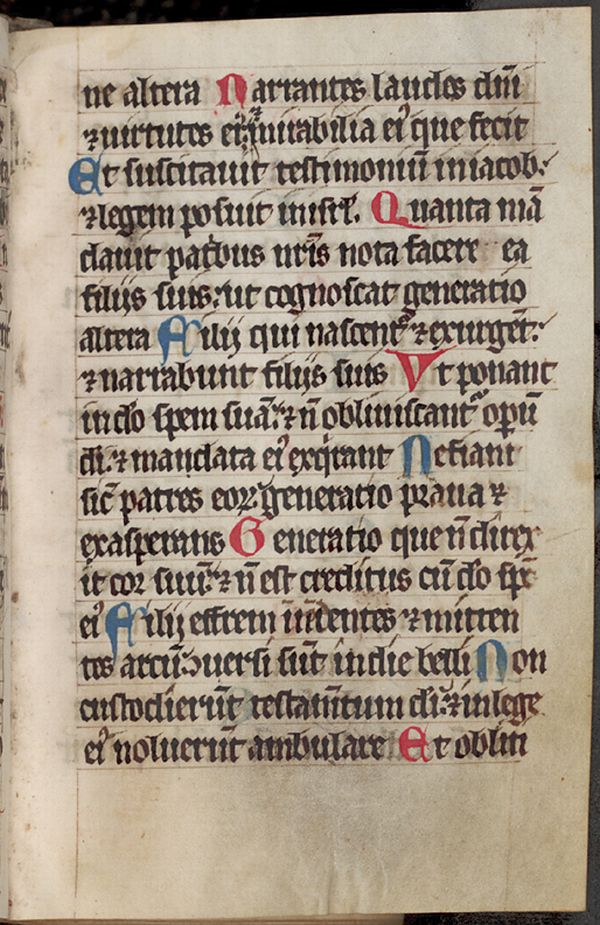 ne altera Narrantes laudes dn̄i
⁊ uirtutes eiꝰ ⁊ mirabilia eiꝰ que fecit
Et suscitauit testimoniū in iacob:
⁊ legem posuit in isrl̄. Quanta mā
dauit patribus nr̄is nota facere ea
filijs suis: ut cognoscat generatio
altera Filij qui nascentᷣ ⁊ exurgēt:
⁊ narrabunt filijs suis Vt ponant
in do̅ spem suā: ⁊ n̄ obliuiscantᷣ operū
di̅: ⁊ mandata eiꝰ exqͥrant Ne fiant
sic̄ patres eoꝝ generatio praua ⁊
exasperans Generatio que n̄ direx
it cor suū: ⁊ n̄ est creditus cū do̅ sp̄c
eiꝰ Filij effrem in̄tendentes ⁊ mitten
tes arcū: ↄuersi sūt in die belli Non
custodierūt testam̄tum di̅: ⁊ in lege
eiꝰ noluerūt ambulare Et obliti